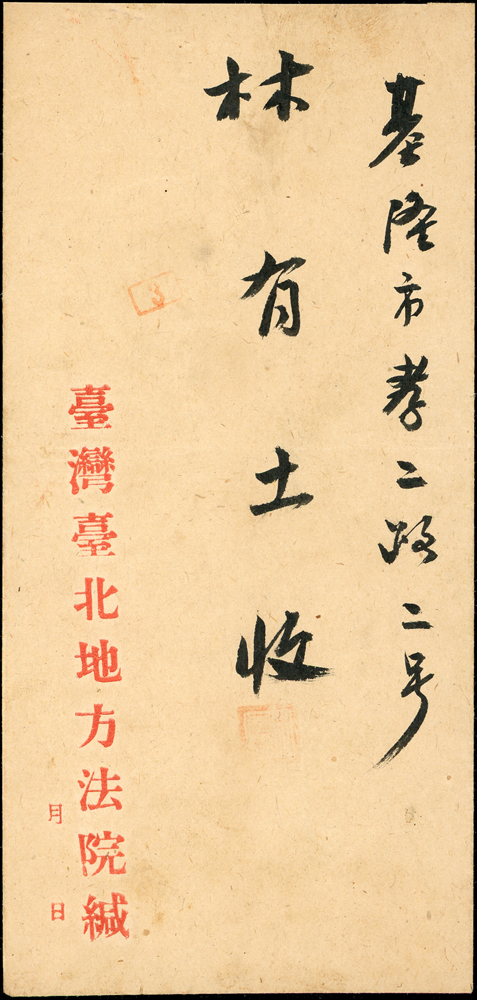 基隆市孝二路二号
林有土收
臺灣臺北地方法院緘
月 日